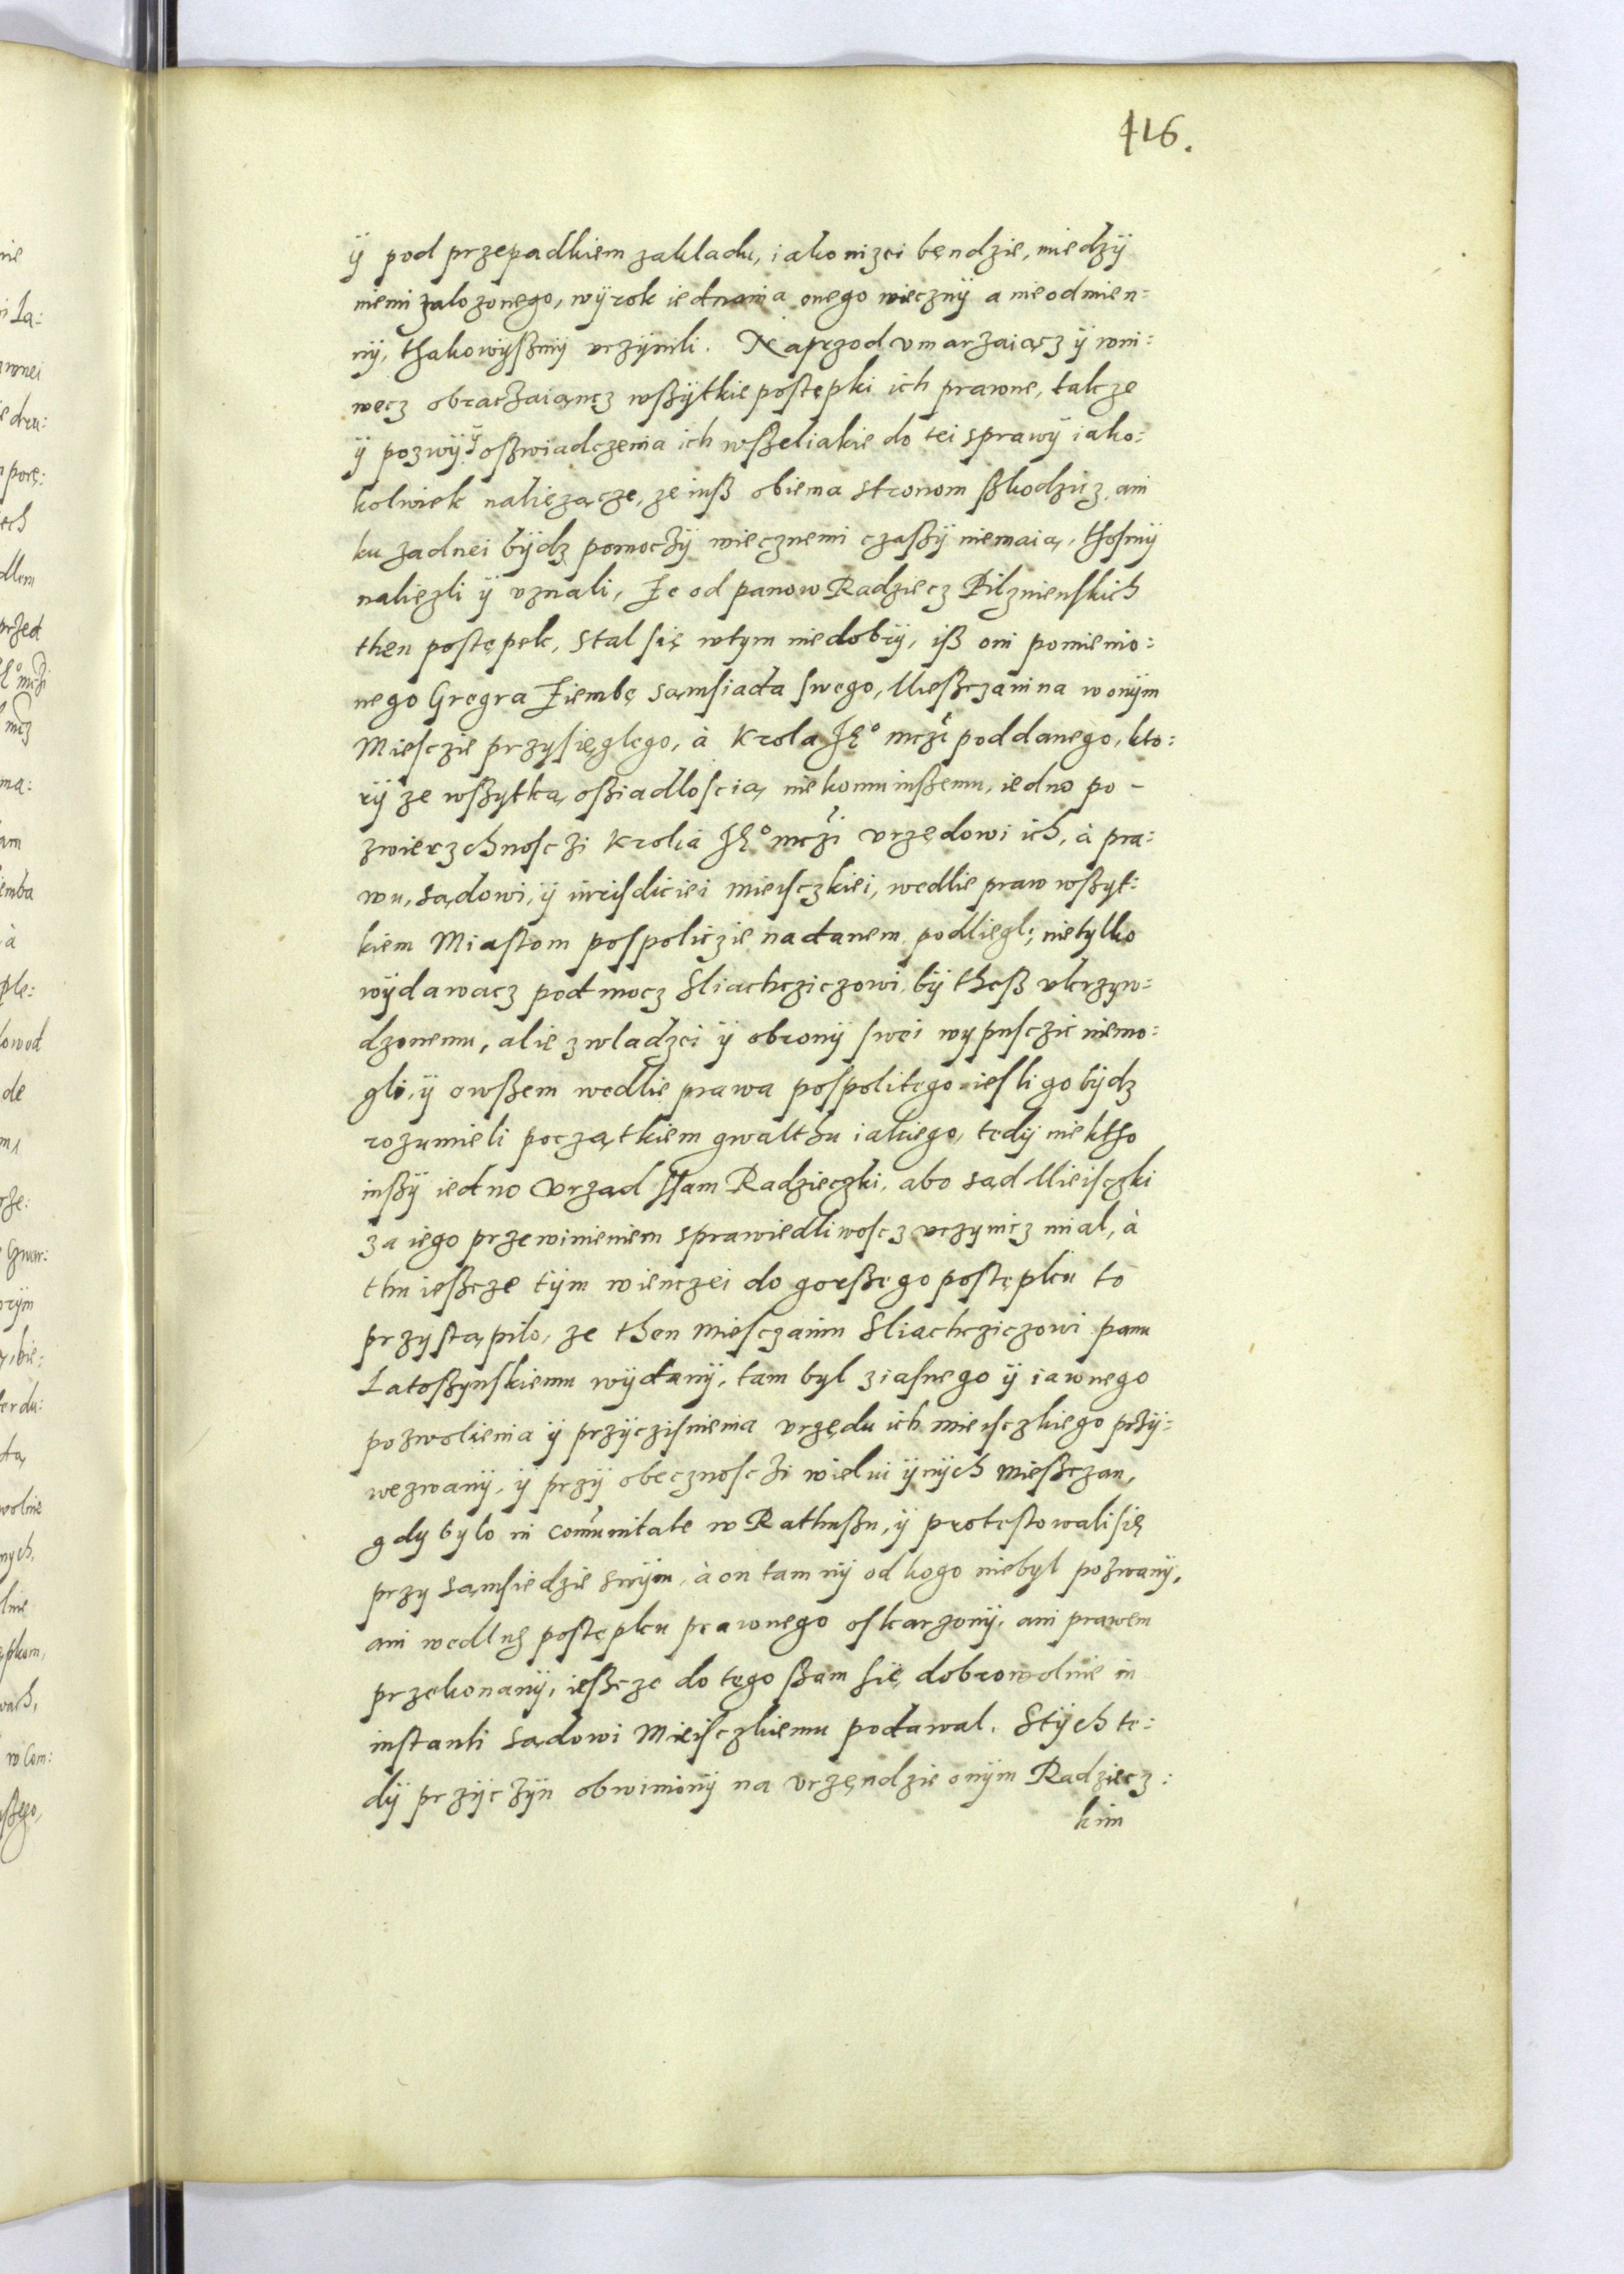 416.
ÿ pod przepadkiem zakladu, iako nizei bęndzie, miedzÿ
niemi zalozonego, wÿrok iednania onego wiecznÿ a nieodmien:
nÿ, thakowÿßmÿ uczÿnili. Naprzod vmarzaiącz ÿ wni:
wecz obraczaiąncz wßÿtkie postępki ich prawne, takze
ÿ pozwÿ ÿ oßwiadczenia ich wßeliakie do tei sprawÿ iako:
kolwiek należącze, ze iuß obiema stronom ßkodzicz, ani
ku zadnei bÿdz pomoczÿ wiecznemi czaßÿ niemaią, thosmÿ
nalięzli ÿ vznali, Ze od panow Radziecz Pilznienskich
then postępek, stal się wtym niedobrÿ, iß oni pomienio:
nego Gregra Ziembę sąmsiada swego, Mießczanina w onÿm
Miesczie przysięglego, à Krola Je° mczi poddanego, kto:
rÿ ze wßytką oßiadloscią niekomu inßemu, iedno po -
zwierzchnosczi Krolia Je° mczi vrzędowi ich, à pra:
wu, sądowi, ÿ iurisdiciei mieisczkiei, wedlie praw wßyt:
kiem Miastom pospoliczie nadanem podliegl; nietylko
wÿdawacz pod mocz Sliachcziczowi, bÿ theß vkrzyw:
dzonemu, alie z wladzei ÿ obronÿ swei wypusczic niemo:
gli, ÿ owßem wedlie prawa pospolitego iesli go bÿdz
rozumieli początkiem gwalthu iakiego, tedÿ niektho
inßÿ iedno Vrzad ßam Radzieczki, abo sąd Mieisczki
za iego przewinieniem sprawiedliwoscz vczynicz mial, à
thu ießcze tÿm wienczei do gorßego postępku to
przystąpilo, ze then miesczanin Sliachcziczowi panu
Latoßynskiemu wÿdanÿ, tam byl z iasnego ÿ iawnego
pozwolienia ÿ przÿczisnienia vrzędu ich mieisczkiego przÿ:
wezwanÿ, ÿ przÿ obecznosczi wielui ÿnÿch mießczan,
gdy bylo in comunitate w Rathußu, ÿ protestowali się
przy sąmsiedzie swÿm, à on tam nÿ od kogo niebyl pozwanÿ,
ani wedlug postępku prawnego oskarzonÿ, ani prawem
przekonanÿ, ießcze do tego ßam się dobrowolnie in
instanti sądowi Mieisczkiemu podawal. Stÿch te:
dÿ przÿczÿn obwinionÿ na vrzęndzie onÿm Radziecz:
kim